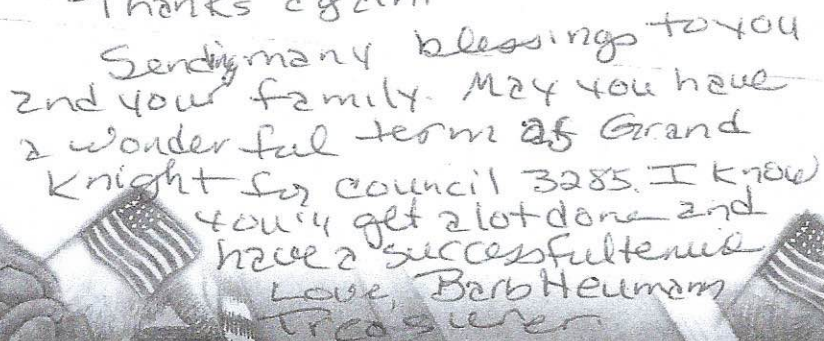 Thanks again
Sending many blessings to you
and your family. May you have
a wonderful term as Grand
Knight for council 3285. I know
you'll get a lot done and
have a successful tenure
Love, Barb Heumann
Treasurer